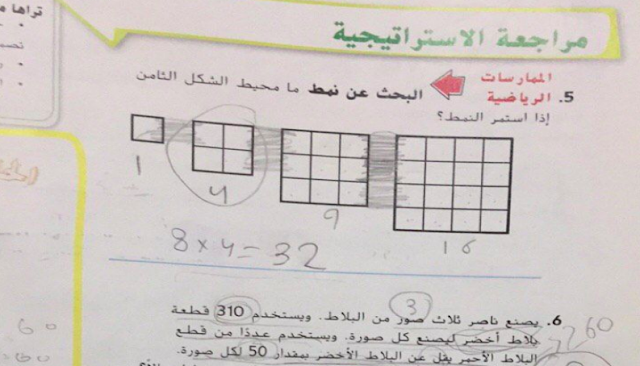 تراها
مراجعة الاستراتيجية
الممارسات
الرياضية
5. البحث عن نمط ما محيط الشكل الثامن
إذا استمر النمط؟
1
4
9
16
8 × 4 = 32
3
6. يصنع ناصر ثلاث صور من البلاط. ويستخدم 310 قطعة
260
بلاط أخضر ليصنع كل صورة. ويستخدم عددًا من قطع
البلاط الأحمر يقل عن البلاط الأخضر بمقدار 50 لكل صورة.